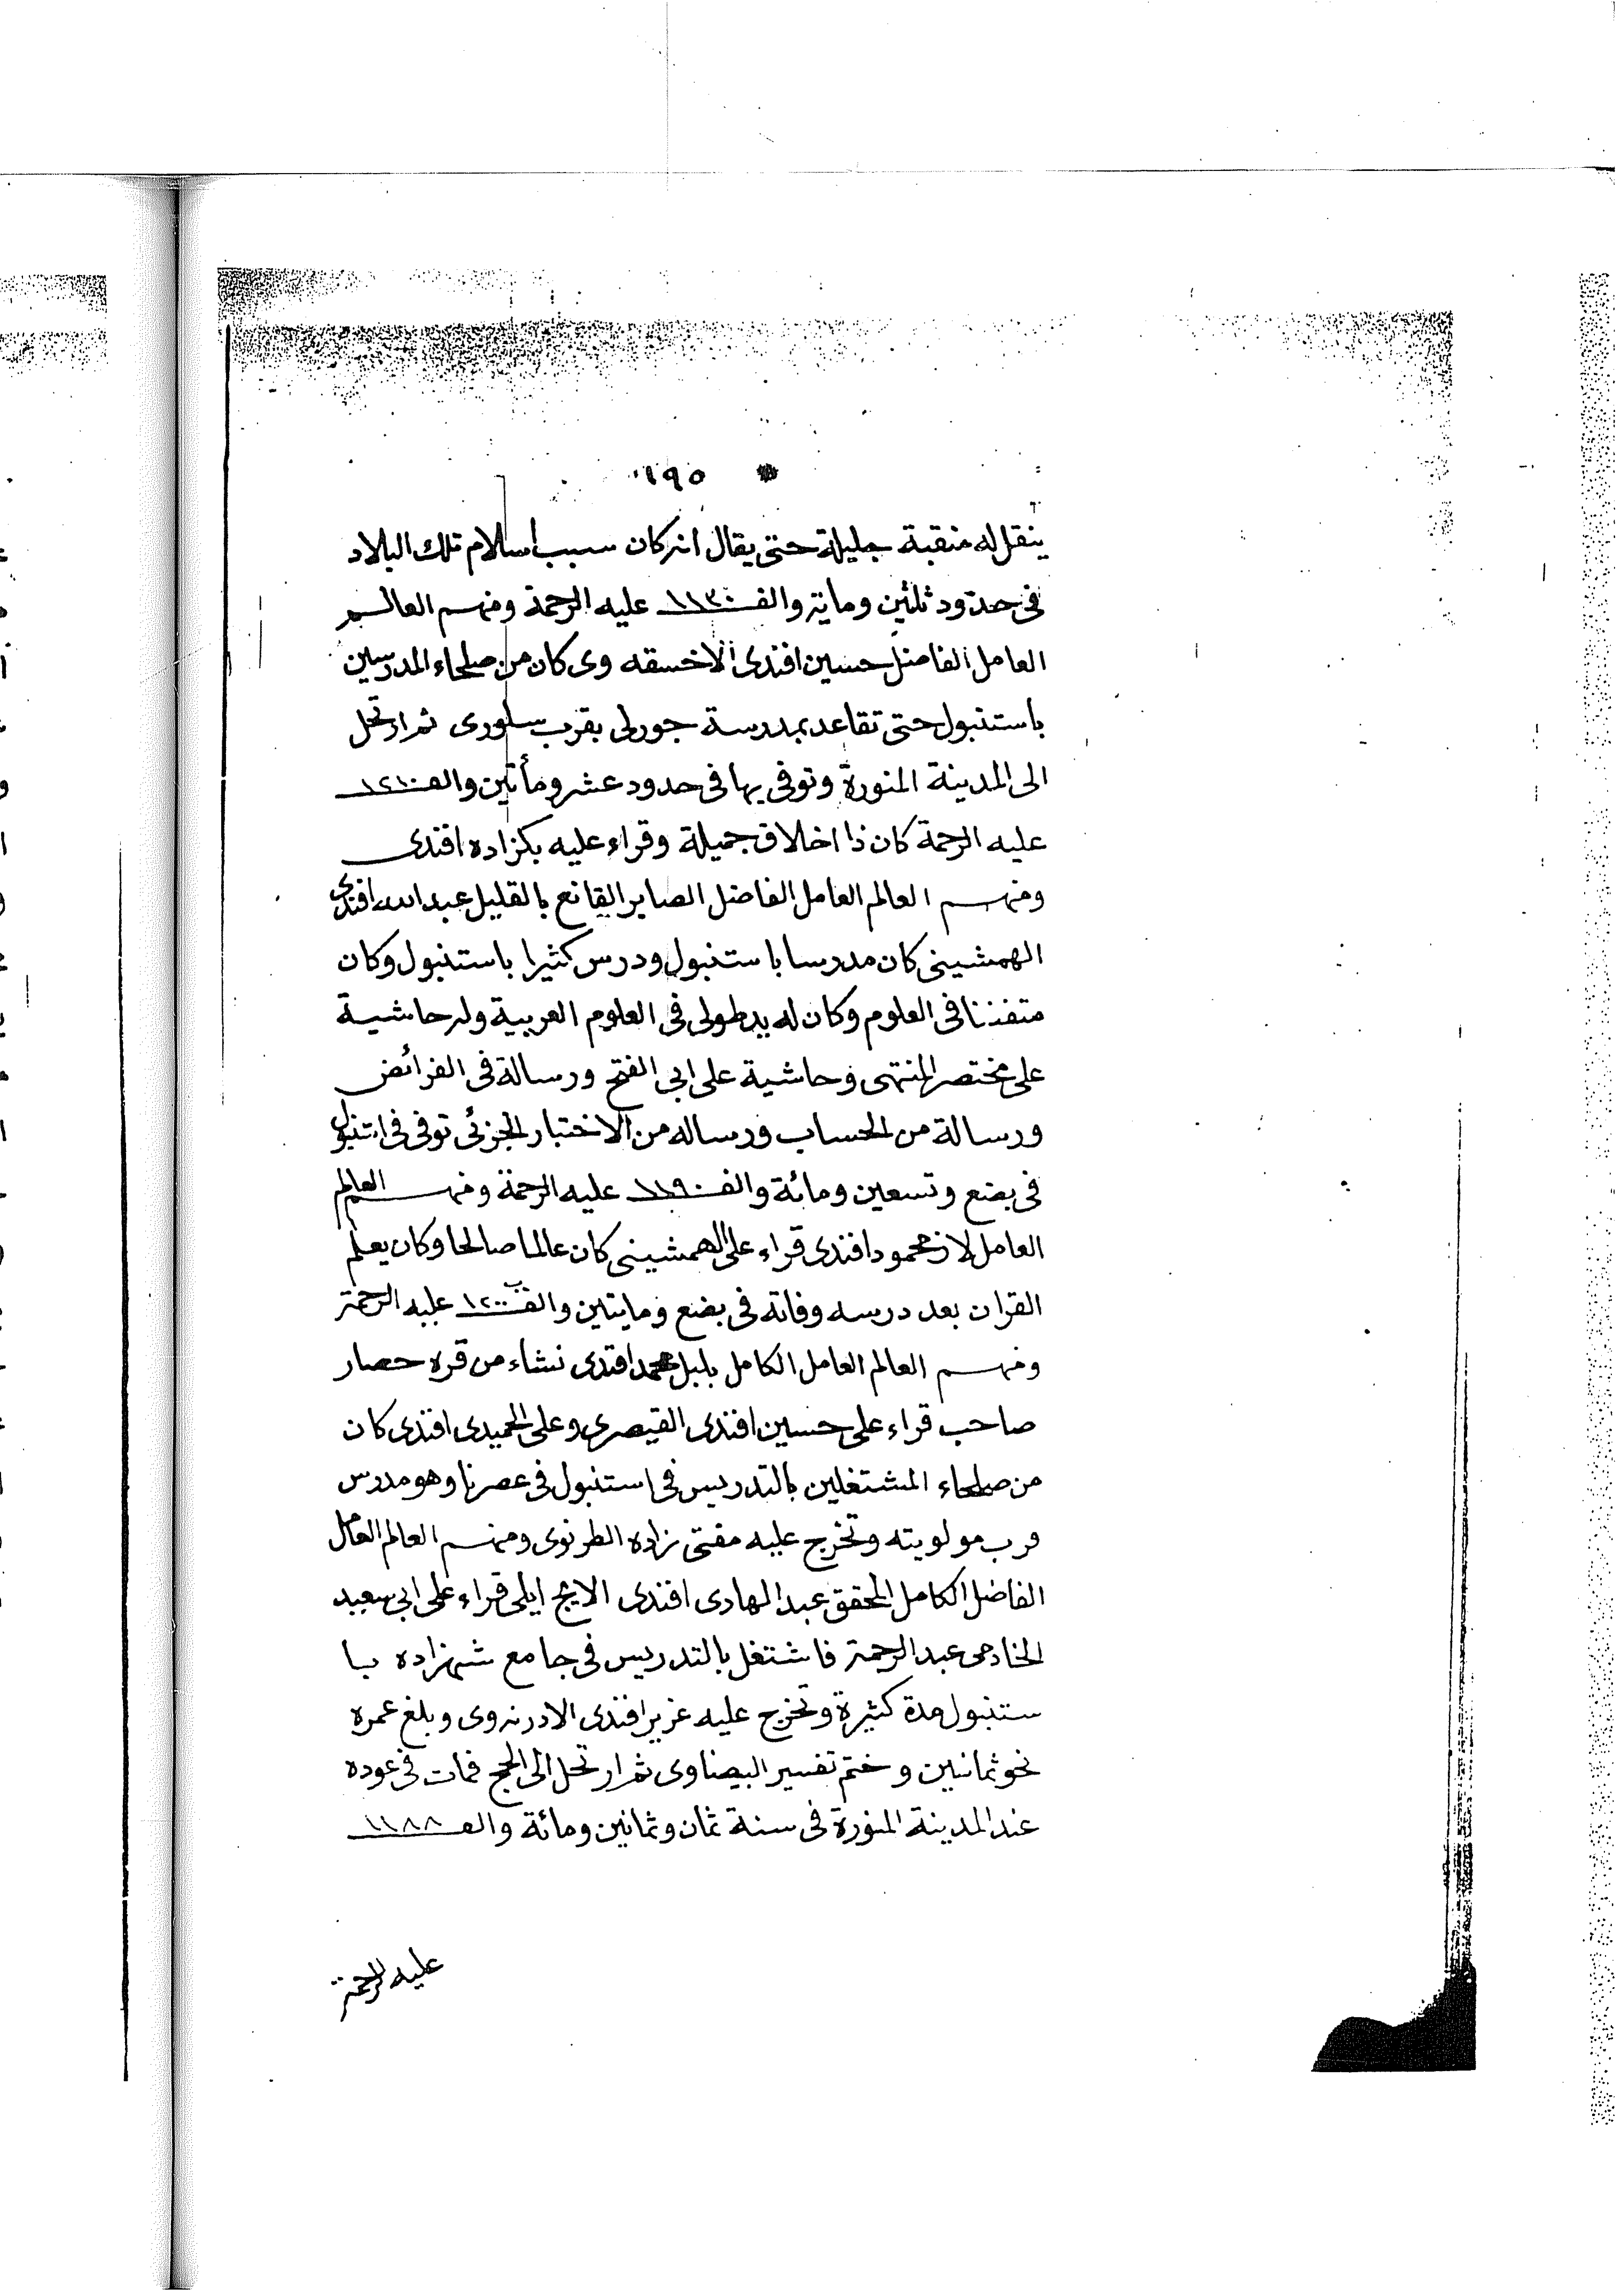 ١٩٥
ينقل له منقبة جليلة حتى يقال انه كان سبب اسلام تلك البلاد
فى حدود ثلثين وماية والف ١١٣٠ عليه الرحمة ومنهم العالم
العامل الفاضل حسين افندى الاخسقه وى كان من صلحاء المدرسين
باستنبول حتى تقاعد بمدرسة جورلى بقرب سلورى ثم ارتحل
الى المدينة المنورة وتوفى بها فى حدود عشر ومأتين والف ١٢١٠
عليه الرحمة كان ذا اخلاق جميلة وقراء عليه بكزاده افندى
ومنهم العالم العامل الفاضل الصابر القانع بالقليل عبد الله افندى
الهمشينى كان مدرسا باستنبول ودرس كثيرا باستنبول وكان
متفننا فى العلوم وكان له يد طولى فى العلوم العربية وله حاشية
على مختصر المنتهى وحاشية على ابى الفتح ورسالة فى الفرائض
ورسالة من الحساب ورساله من الاختبار الجزئى توفى فى استنبول
فى بضع وتسعين ومائة والف ١١٩٠ عليه الرحمة ومنهم العالم
العامل لاز محمود افندى قراء على الهمشينى كان عالما صالحا وكان يعلم
القران بعد درسه وفاته فى بضع ومايتين والف ١٢٠٠ عليه الرحمة
ومنهم العالم العامل الكامل بلبل محمد افندى نشاء من قره حصار
صاحب قراء على حسين افندى القيصرى وعلى الحميدى افندى كان
من صلحاء المشتغلين بالتدريس فى استنبول فى عصرنا وهو مدرس
قرب مولويته وتخرج عليه مفتى زاده الطرنوى ومنهم العالم العامل
الفاضل الكامل المحقق عبد الهادى افندى الايچ ايلى قراء على ابى سعيد
الخادمى عبد الرحمة فاشتغل بالتدريس فى جامع شهزاده با
ستنبول مدة كثيرة وتخرج عليه عزير افندى الادرنه وى وبلغ عمره
نحو ثمانين وختم تفسير البيضاوى ثم ارتحل الى الحج فمات فى عوده
عند المدينة المنورة فى سنة ثمان وثمانين ومائة والف ١١٨٨
عليه الرحمة